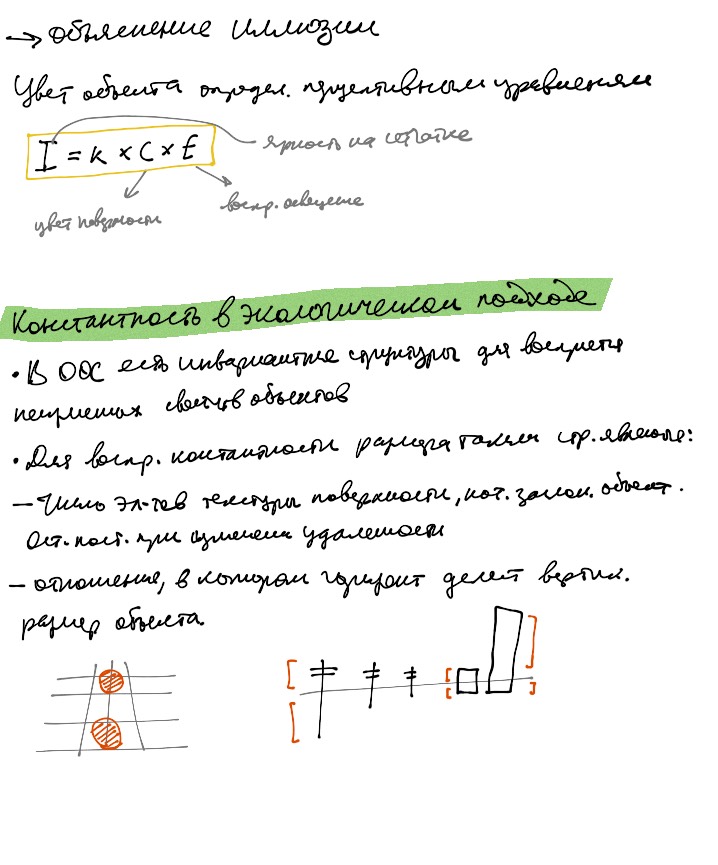 → объяснение иллюзии
Цвет объекта определ. перцептивным уравнением
I = k × C × E
яркость на сетчатке
цвет поверхности
воспр. освещение
Константность в экологическом подходе
• В ООС есть инвариантные структуры для восприятия
неизменных свойств объектов
• Для воспр. константности размера такими стр. являются:
– Число эл-тов текстуры поверхности, кот. заслон. объект.
Ост. пост. при изменении удалённости
– отношение, в котором горизонт делит вертик.
размер объекта.